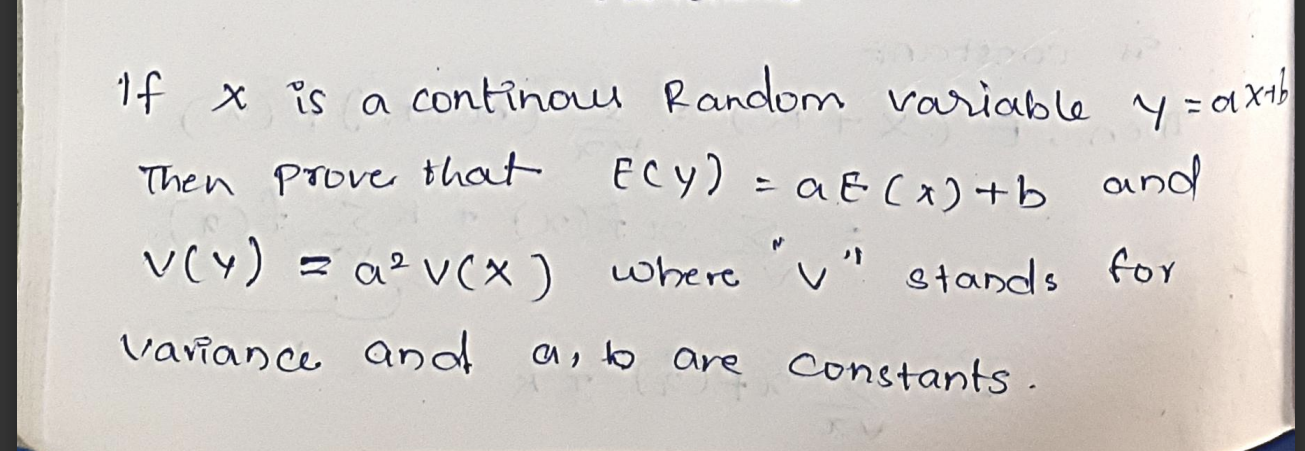 If x is a continous Random variable y = ax+b
Then prove that E(y) = aE(x)+b and
V(y) = a² V(X) where "V" stands for
Variance and a, b are constants.